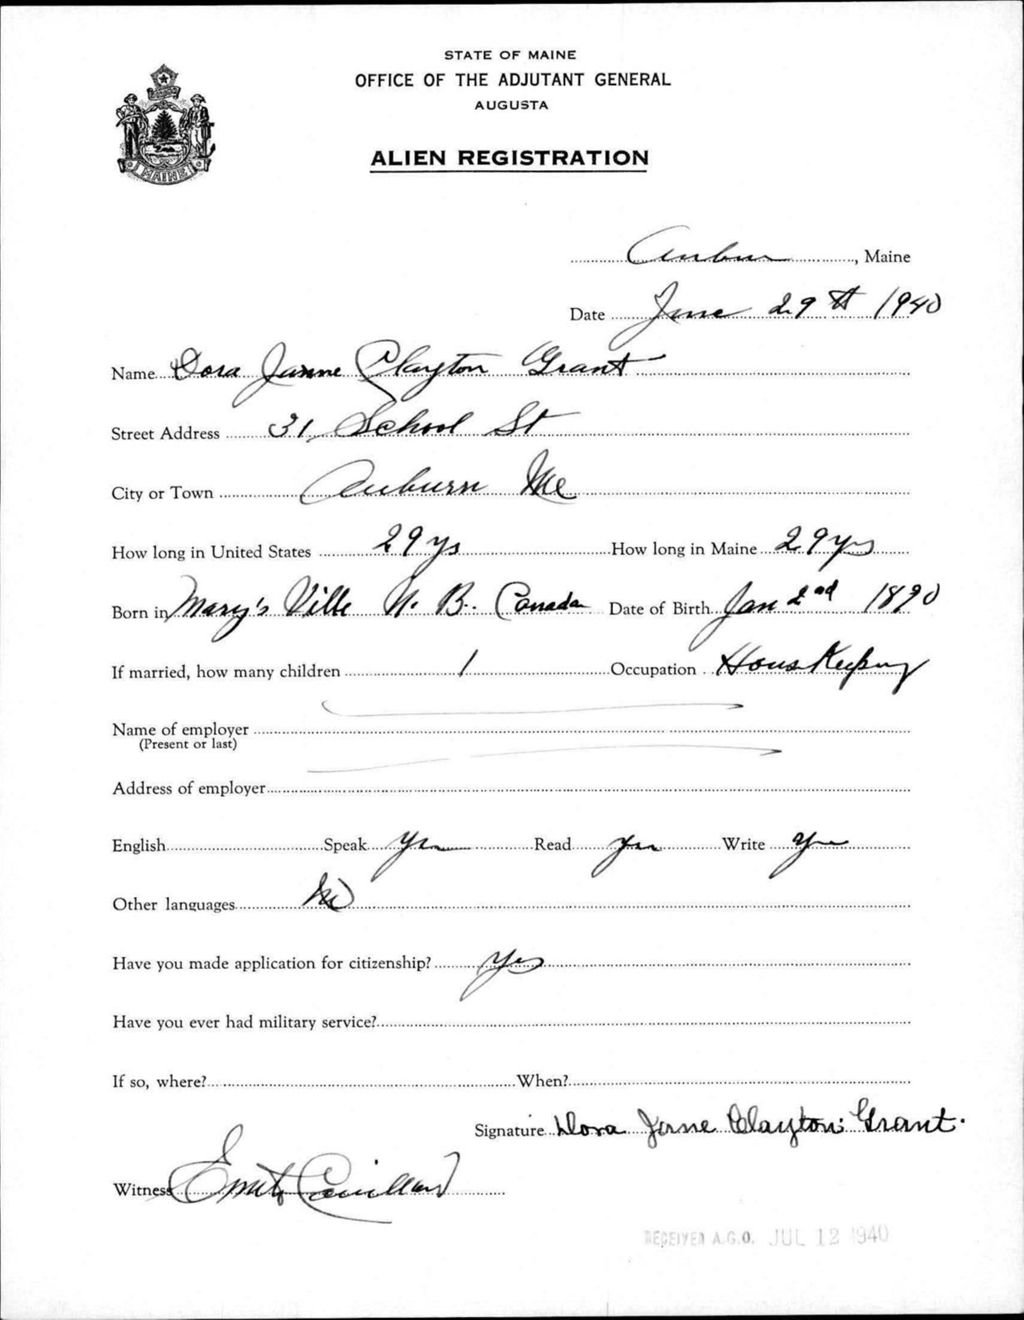 STATE OF MAINE
OFFICE OF THE ADJUTANT GENERAL
AUGUSTA
ALIEN REGISTRATION
MAINE
Auburn, Maine
Date June 29th 1940
Name Dora Janne Clayton Grant
Street Address 31 School St
City or Town Auburn Me
How long in United States 29 ys How long in Maine 29 yrs
Born in Mary's Ville N. B. Canada Date of Birth Jan 2nd 1890
If married, how many children 1 Occupation HousKeeping
Name of employer
(Present or last)
Address of employer
English Speak Yes Read Yes Write Yes
Other languages No
Have you made application for citizenship? Yes
Have you ever had military service?
If so, where? When?
Signature Dora Janne Clayton Grant.
Witness
RECEIVED A.G.O. JUL 12 1940